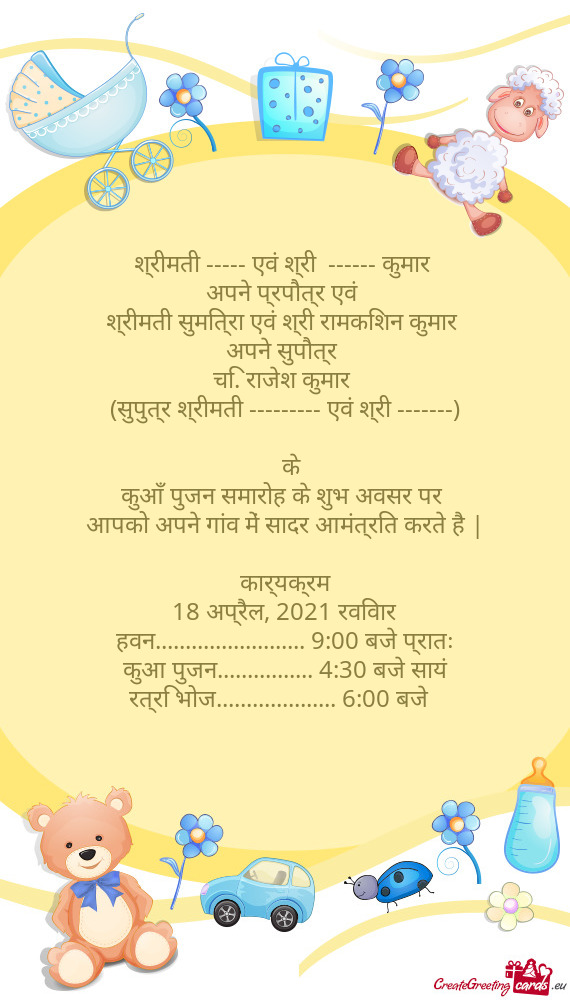 श्रीमती ----- एवं श्री  ------ कुमार
अपने प्रपौत्र एवं
श्रीमती सुमित्रा एवं श्री रामकिशन कुमार
अपने सुपौत्र
चि. राजेश कुमार
(सुपुत्र श्रीमती --------- एवं श्री -------)
के
कुआँ पुजन समारोह के शुभ अवसर पर
आपको अपने गांव में सादर आमंत्रित करते है |
कार्यक्रम
18 अप्रैल, 2021 रविवार
हवन......................... 9:00 बजे प्रातः
कुआ पुजन................ 4:30 बजे सायं
रत्रि भोज.................... 6:00 बजे
CreateGreeting cards .eu